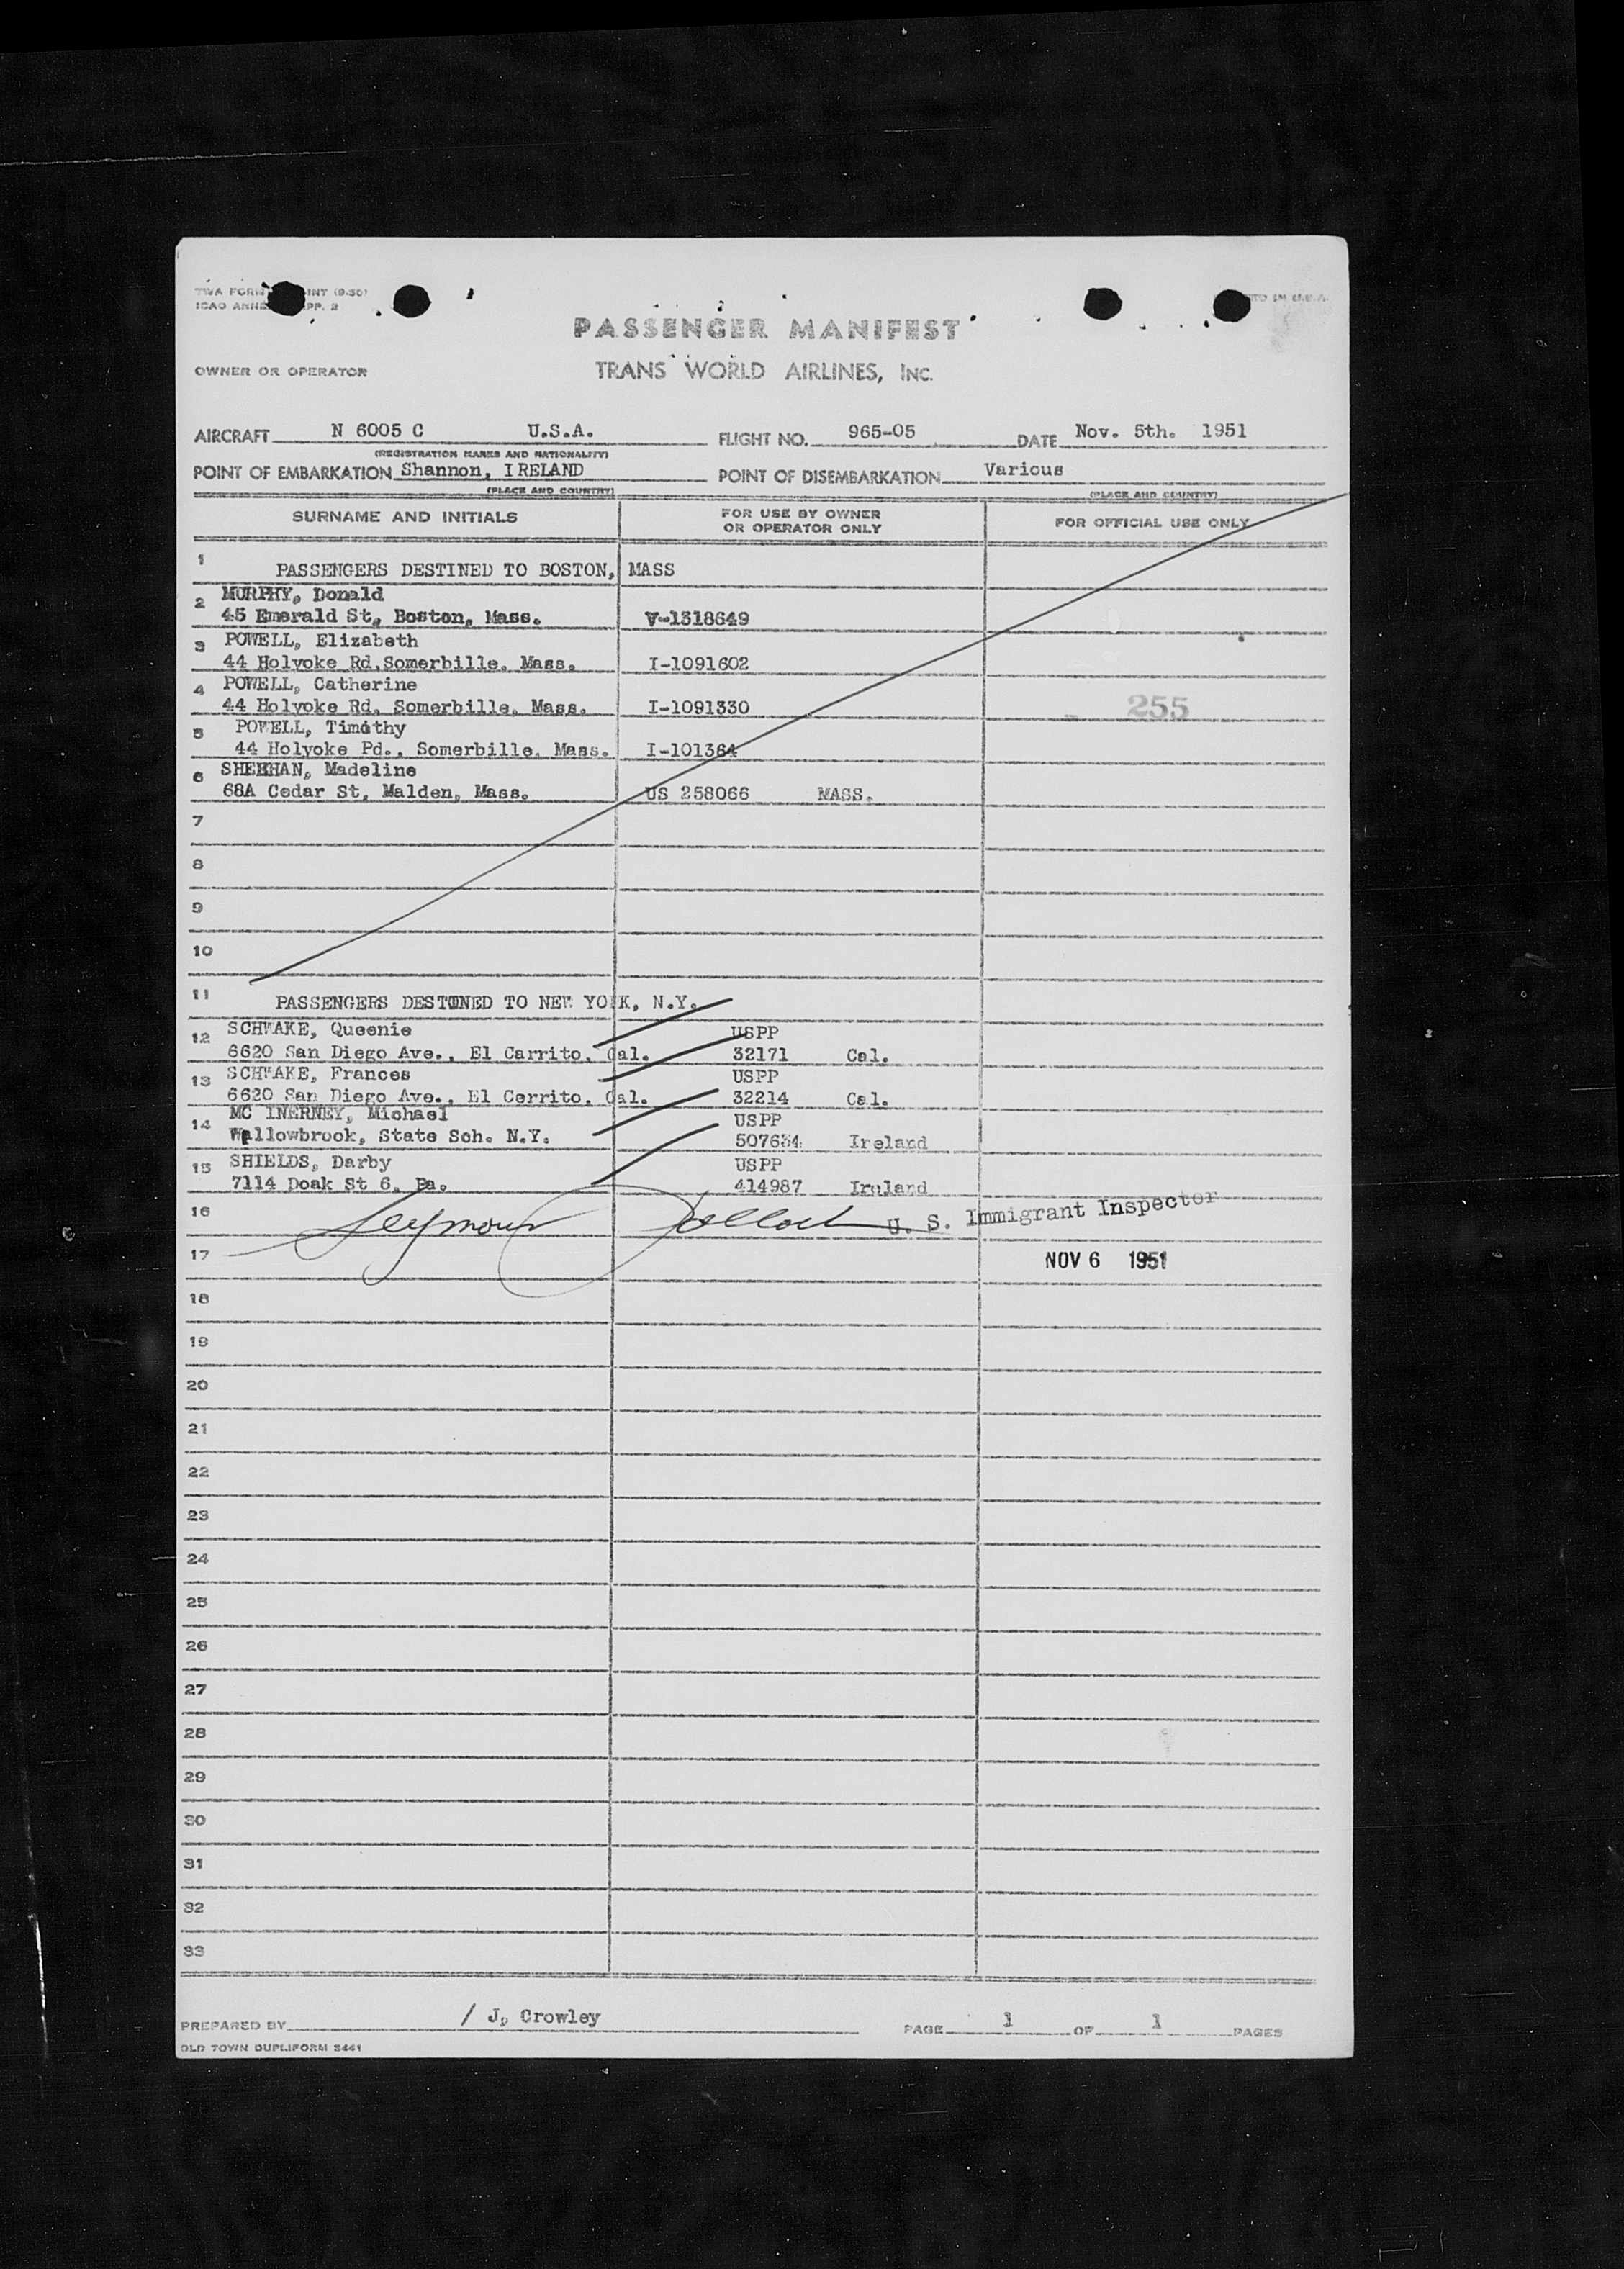 TWA FORM INT (9-50)
ICAO ANNE PP. 2
PASSENGER MANIFEST
OWNER OR OPERATOR TRANS WORLD AIRLINES, INC.
AIRCRAFT N 6005 C U.S.A. FLIGHT NO. 965-05 DATE Nov. 5th. 1951
(REGISTRATION MARKS AND NATIONALITY)
POINT OF EMBARKATION Shannon, IRELAND POINT OF DISEMBARKATION Various
(PLACE AND COUNTRY) (PLACE AND COUNTRY)
SURNAME AND INITIALS FOR USE BY OWNER OR OPERATOR ONLY FOR OFFICIAL USE ONLY
1 PASSENGERS DESTINED TO BOSTON, MASS
2 MURPHY, Donald
45 Emerald St, Boston, Mass. V-1318649
3 POWELL, Elizabeth
44 Holyoke Rd.Somerbille. Mass. I-1091602
4 POWELL, Catherine
44 Holyoke Rd. Somerbille. Mass. I-1091330 255
5 POWELL, Timothy
44 Holyoke Pd., Somerbille. Mass. I-101364
6 SHEEHAN, Madeline
68A Cedar St, Malden, Mass. US 258066 MASS.
7
8
9
10
11 PASSENGERS DESTINED TO NEW YORK, N.Y.
12 SCHWAKE, Queenie USPP
6620 San Diego Ave., El Carrito. Cal. 32171 Cal.
13 SCHWAKE, Frances USPP
6620 San Diego Ave., El Cerrito. Cal. 32214 Cal.
14 MC INERNEY, Michael USPP
Wallowbrook, State Sch. N.Y. 507634 Ireland
15 SHIELDS, Darby USPP
7114 Doak St 6. Pa. 414987 Ireland
16 Seymour U. S. Immigrant Inspector
17 NOV 6 1951
18
19
20
21
22
23
24
25
26
27
28
29
30
31
32
33
PREPARED BY / J. Crowley PAGE 1 OF 1 PAGES
OLD TOWN DUPLIFORM 5441